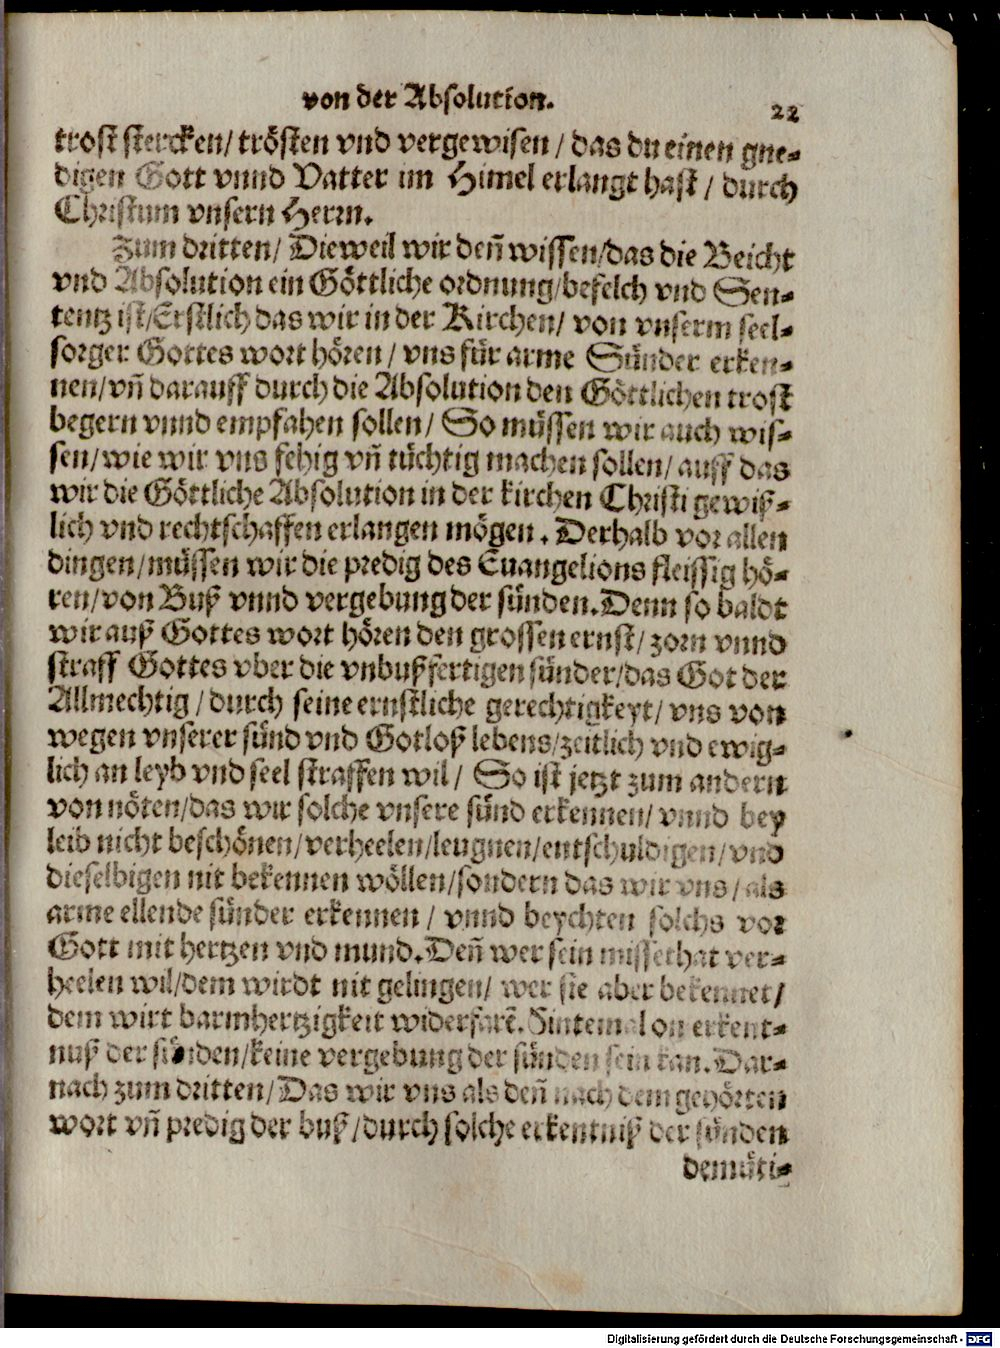 von der Absolution.
22
trost stercken/ trösten vnd vergewisen / das du einen gne-
digen Gott vnnd Vatter im Himel erlangt hast / durch
Christum vnsern Herrn.
Zum dritten/ Dieweil wir deñ wissen/das die Beicht
vnd Absolution ein Göttliche ordnung/befelch vnd Sen-
tentz ist/Erstlich das wir in der Kirchen/ von vnserm seel-
sorger Gottes wort hören / vns für arme Sünder erken-
nen/vñ darauff durch die Absolution den Göttlichen trost
begern vnnd empfahen sollen/ So müssen wir auch wis-
sen/wie wir vns fehig vñ tüchtig machen sollen/ auff das
wir die Göttliche Absolution in der kirchen Christi gewiß-
lich vnd rechtschaffen erlangen mögen. Derhalb vor allen
dingen/müssen wir die predig des Euangelions fleissig hö-
ren/von Buß vnnd vergebung der sünden. Denn so baldt
wir auß Gottes wort hören den grossen ernst/ zorn vnnd
straff Gottes vber die vnbußfertigen sünder/das Got der
Allmechtig / durch seine ernstliche gerechtigkeyt/ vns von
wegen vnserer sünd vnd Gotloß lebens/zeitlich vnd ewig-
lich an leyb vnd seel straffen wil/ So ist jetzt zum andern
von nöten/das wir solche vnsere sünd erkennen/ vnnd bey
leib nicht beschönen/verheelen/leugnen/entschuldigen/vnd
dieselbigen nit bekennen wöllen/sondern das wir vns / als
arme ellende sünder erkennen / vnnd beychten solchs vor
Gott mit hertzen vnd mund. Deñ wer sein missethat ver-
heelen wil/dem wirdt nit gelingen/ wer sie aber bekennet/
dem wirt barmhertzigkeit widerfarẽ. Sintemal on erkent-
nuß der sünden/keine vergebung der sünden sein kan. Dar-
nach zum dritten/ Das wir vns als deñ nach dem gehörten
wort vñ predig der buß/durch solche erkentniß der sünden
demüti-
Digitalisierung gefördert durch die Deutsche Forschungsgemeinschaft - DFG